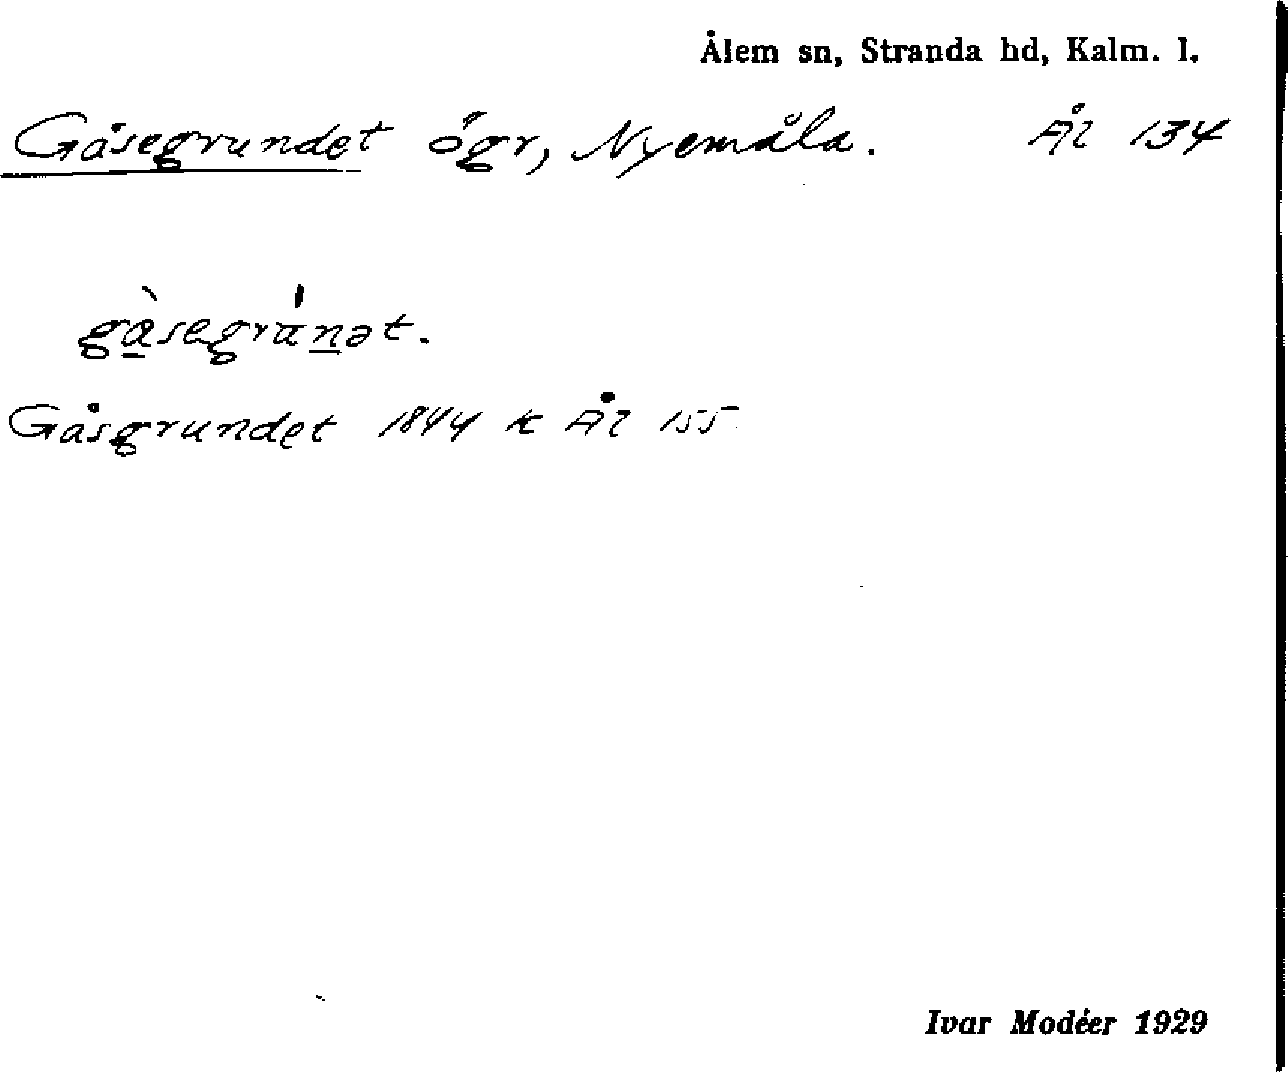 Ålem sn, Stranda hd, Kalm. l.
Gåsegrundet ögr, Nyemåla. Ål 134
gàsegrúnət.
Gåsgrundet 1844 k Ål 155
Ivar Modéer 1929